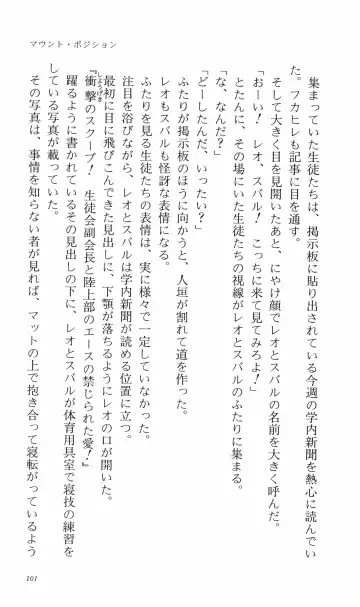 マウント・ポジション
集まっていた生徒たちは、掲示板に貼り出されている今週の学内新聞を熱心に読んでい
た。フカヒレも記事に目を通す。
そして大きく目を見開いたあと、にやけ顔でレオとスバルの名前を大きく呼んだ。
「おーい！　レオ、スバル！　こっちに来て見てみろよ！」
とたんに、その場にいた生徒たちの視線がレオとスバルのふたりに集まる。
「な、なんだ？」
「どーしたんだ、いったい？」
ふたりが掲示板のほうに向かうと、人垣が割れて道を作った。
レオもスバルも怪訝な表情になる。
ふたりを見る生徒たちの表情は、実に様々で一定していなかった。
注目を浴びながら、レオとスバルは学内新聞が読める位置に立つ。
最初に目に飛びこんできた見出しに、下顎が落ちるようにレオの口が開いた。
『衝撃のスクープ！　生徒会副会長と陸上部のエースの禁じられた愛！』
しょうげき
躍るように書かれているその見出しの下に、レオとスバルが体育用具室で寝技の練習を
している写真が載っていた。
その写真は、事情を知らない者が見れば、マットの上で抱き合って寝転がっているよう
101